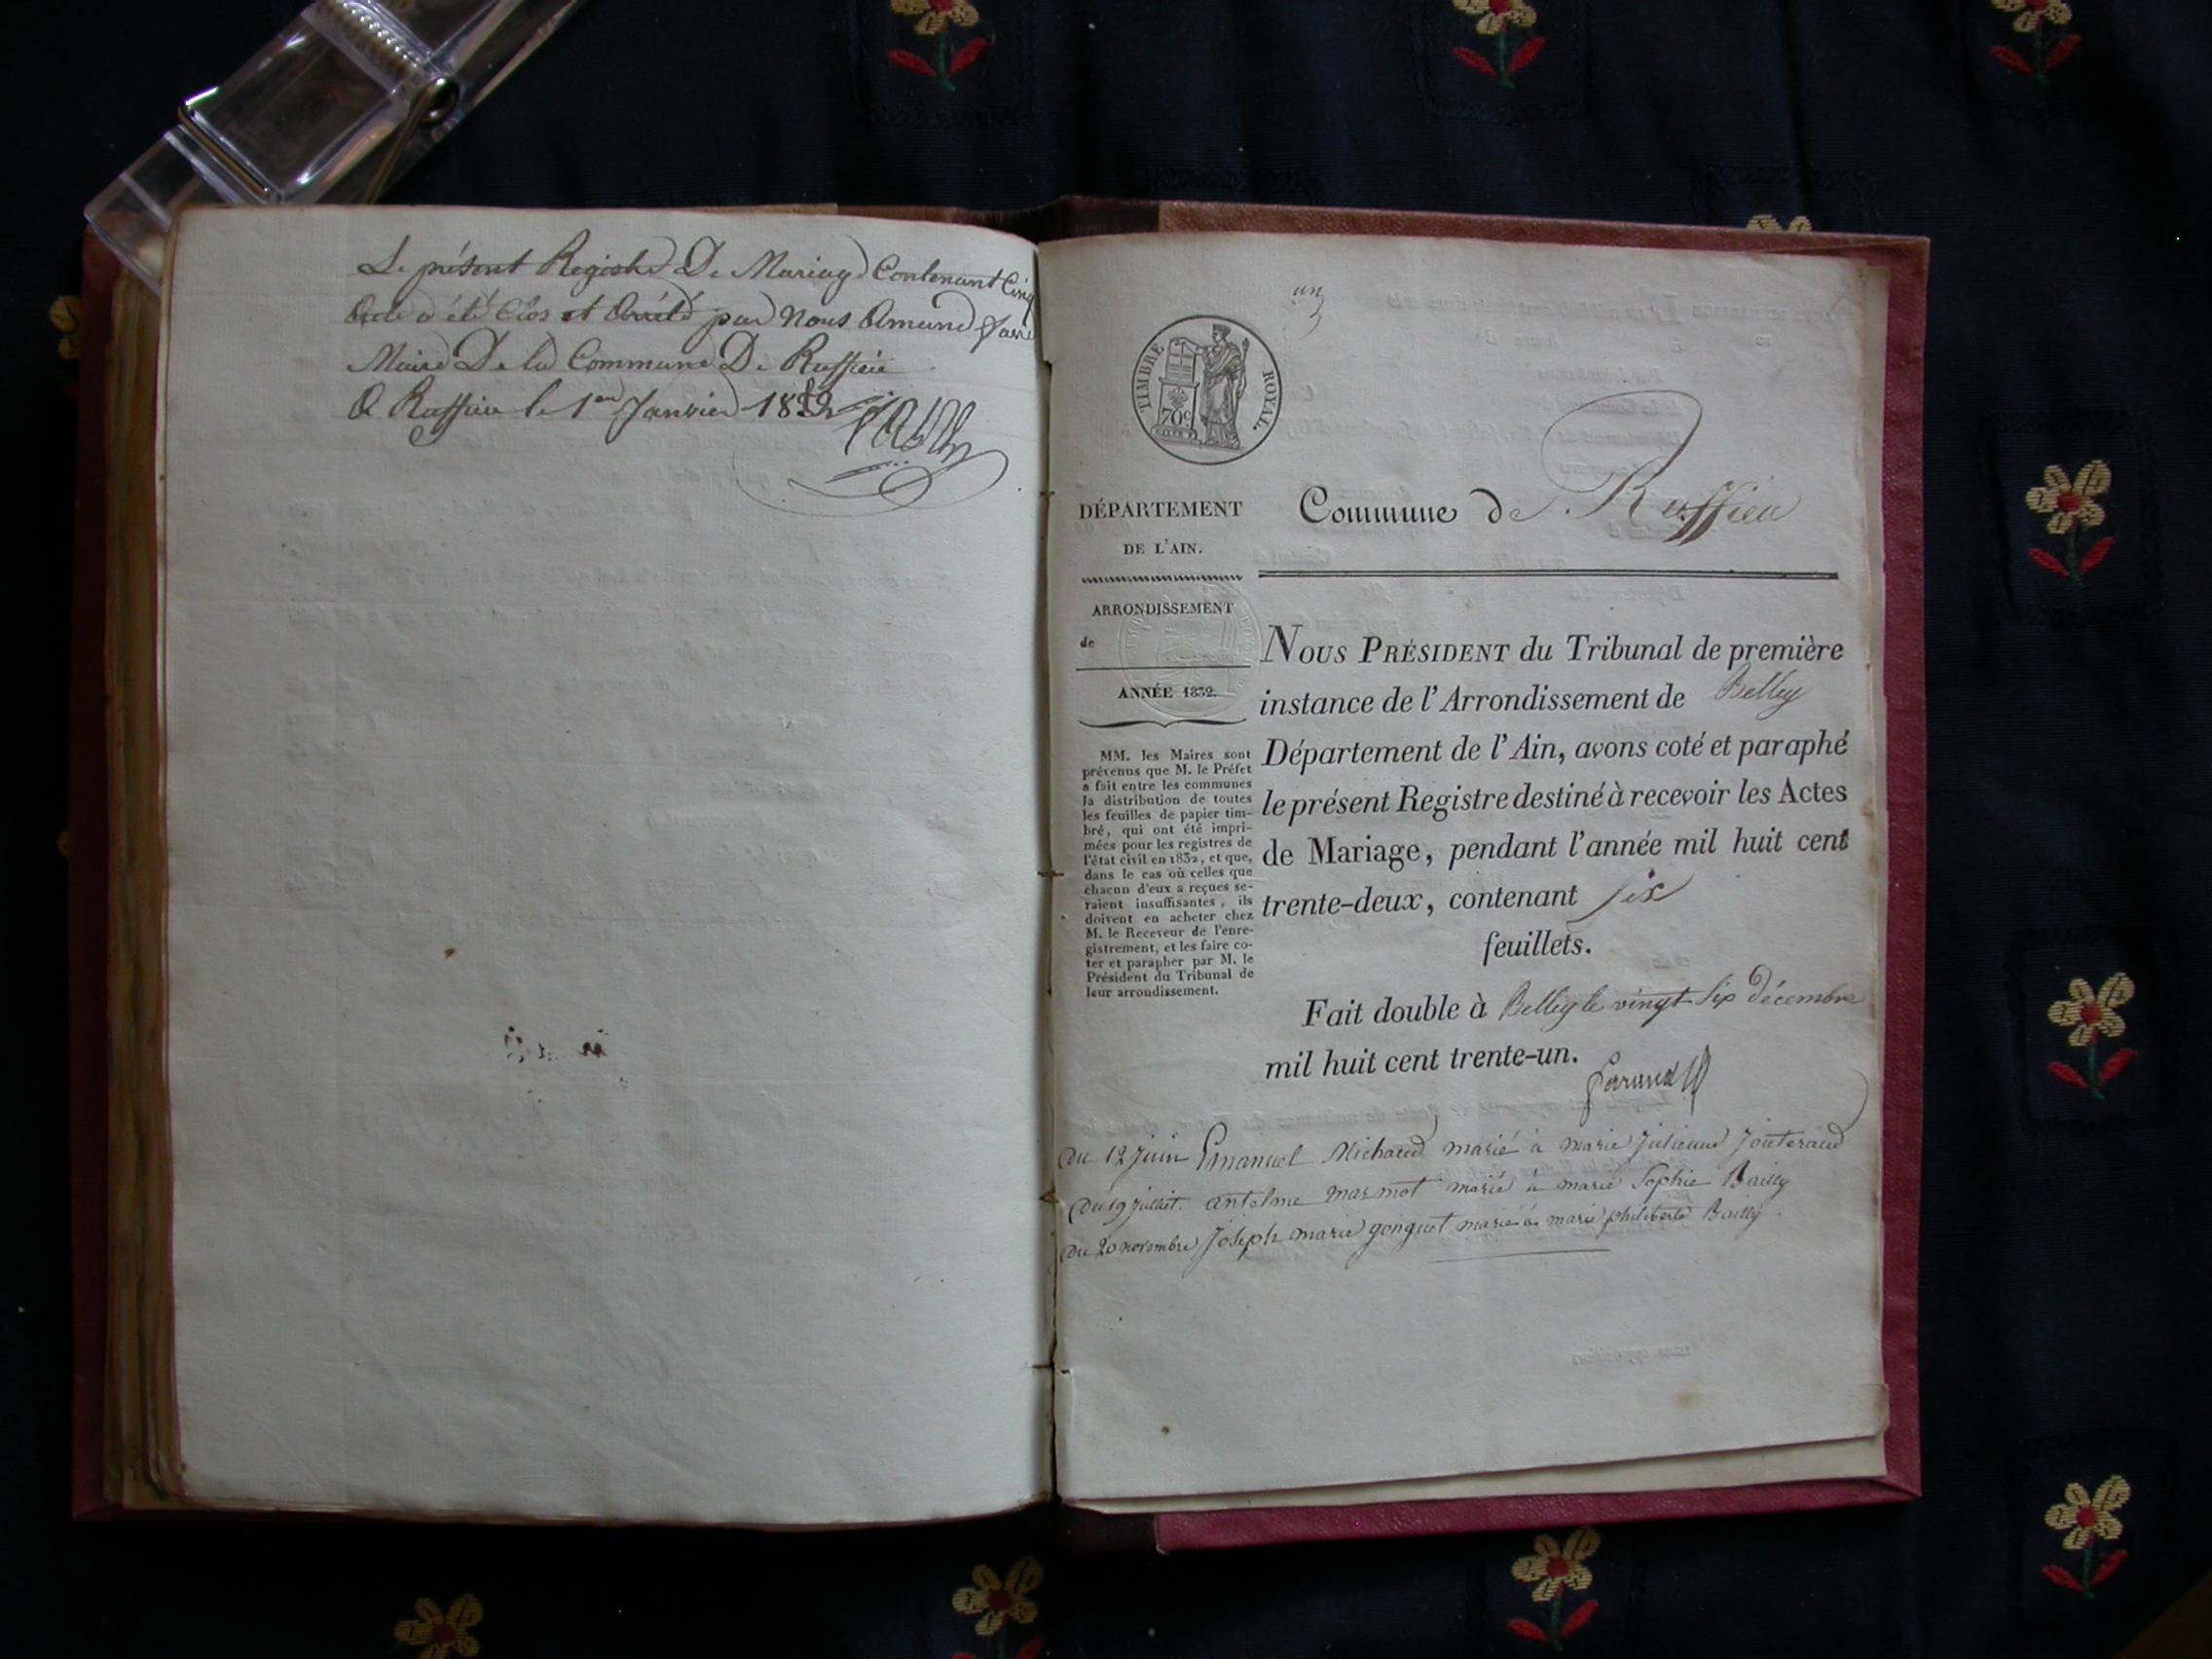 Le présent Registre De Mariage Contenant Cinq
Acte a été Clos et Arrêté par Nous Amand
Maire De la Commune De Ruffieu
A Ruffieu le 1er Janvier 1832
un
TIMBRE ROYAL.
70c
DÉPARTEMENT
DE L'AIN.
Commune de Ruffieu
ARRONDISSEMENT
de
ANNÉE 1832.
MM. les Maires sont
prévenus que M. le Préfet
a fait entre les communes
la distribution de toutes
les feuilles de papier tim-
bré, qui ont été impri-
mées pour les registres de
l'état civil en 1832, et que,
dans le cas où celles que
chacun d'eux a reçues se-
raient insuffisantes, ils
doivent en acheter chez
M. le Receveur de l'enre-
gistrement, et les faire co-
ter et parapher par M. le
Président du Tribunal de
leur arrondissement.
NOUS PRÉSIDENT du Tribunal de première
instance de l'Arrondissement de Belley
Département de l'Ain, avons coté et paraphé
le présent Registre destiné à recevoir les Actes
de Mariage, pendant l'année mil huit cent
trente-deux, contenant six
feuillets.
Fait double à Belley le vingt-six décembre
mil huit cent trente-un.
du 12 juin Emanuel Michaud marié à marie julienne
du 19 juillet antelme marmot marié à marie Sophie Bailly
du 20 novembre joseph marie gonguet marié à marie philiberte Bailly